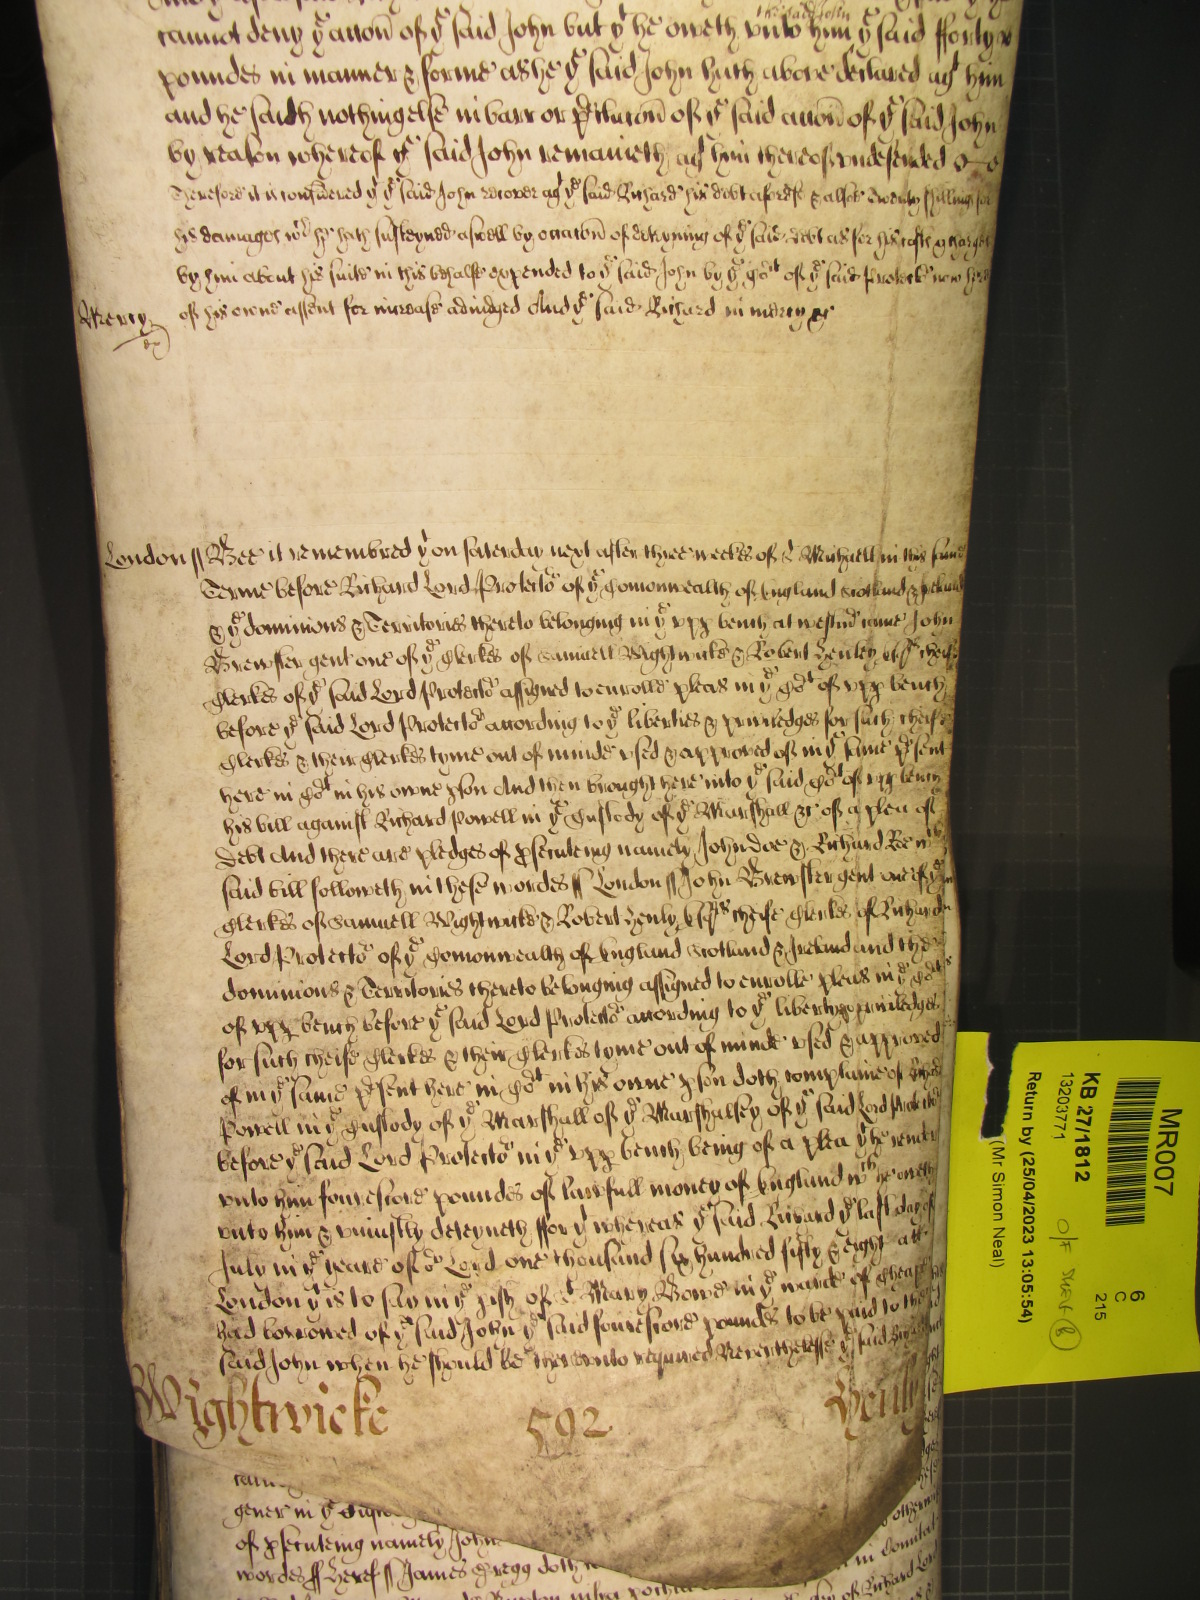 cannot deny yͤ accōn of yͤ said John but yͭ he oweth unto him yͤ said fforty
the said John
poundes in manner & forme as he yͤ said John hath above declared agͭ him
and he saith nothing else in barr or p̱clusion of yͤ said accōn of yͤ said John
by reason whereof yͤ said John remaineth agͭ him thereof undefended &c
Therefore it is considered yͭ yͤ said John recover agͭ yͤ said Richard his debt aforesᵈ & alsoe Twenty shillings for
his damages wᶜʰ he hath susteyned aswell by occasion of deteyning of yͤ said debt as for his costs & charges
by him about his suite in this behalfe expended to yͤ said John by yͤ Coͬt of yͤ said Protectoͬ now here
of his owne assent for increase adiudged And yͤ said Richard in mercy &c
Mercy
London ss Bee it remembred yͭ on Saterday next after three weekes of Sͭ Michaell in this same
Terme before Richard Lord Protectoͬ of yͤ Comonwealth of England Scotland & Ireland
& yͤ dominions & Territories thereto belonging in yͤ upp̱ bench at Westmͬ came John
Brewster gent one of yͤ Clerkes of Samuell Wightwicke & Robert Henley Esqͬˢ cheife
Clerkes of yͤ said Lord Protectoͬ assigned to enrolle pleas in yͤ Coͬt of upp̱ bench
before yͤ said Lord Protectoͬ according to yͤ liberties & priviledges for such cheife
Clerkes & their Clerkes tyme out of minde used & approved of in yͤ same p̱sent
here in Coͬt in his owne p̱son And then brought here into yͤ said Coͬt of upp̱ bench
his bill against Richard Powell in yͤ Custody of yͤ Marshall &c of a plea of
debt And there are pledges of p̱secuteing namely John Doe & Richard Roe wᶜʰ
said bill followeth in these wordes ss London ss John Brewster gent one of yͤ
Clerkes of Samuell Wightwicke & Robert Henly Esqͬˢ cheife Clerkes of Richard
Lord Protectoͬ of yͤ Comonwealth of England Scotland & Ireland and the
dominions & Territories thereto belonging assigned to enrolle pleas in yͤ Coͬt
of upp̱ bench before yͤ said Lord Protectoͬ according to yͤ libertyes & priviledges
for such cheife Clerkes & their Clerkes tyme out of minde used & approved
of in yͤ same p̱sent here in Coͬt in his owne p̱son doth complaine of Richard
Powell in yͤ Custody of yͤ Marshall of yͤ Marshalsey of yͤ said Lord Protectoͬ
before yͤ said Lord Protectoͬ in yͤ upp̱ bench being of a plea yͭ he render
unto him fourescore poundes of lawfull money of England wᶜʰ he oweth
unto him & uniustly deteyneth ffor yͭ whereas yͤ said Richard yͤ last day of
July in yͤ yeare of oͬ Lord one thousand six hundred fifty & eight att
London yͭ is to say in yͤ p̱ish of Sͭ Mary Bowe in yͤ warde of Cheape
had borrowed of yͤ said John yͤ said fourescore poundes to be paid to the
said John when he should be thereunto required Neverthelesse yͤ said Richard
Wightwicke 592 Henly
gener in yͤ
of p̱secuteing namely John
wordes ss Heref ss James Gregg doth
in Comitat
of Richard Lord
MR007
6
C
215
KB 27/1812
13203771
O/F
Return by (25/04/2023 13:05:54)
(Mr Simon Neal)